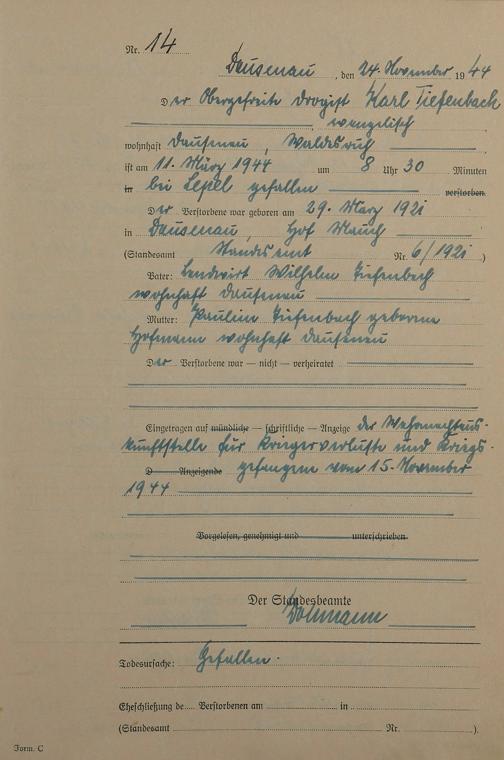 Nr. 14
Dausenau, den 24. November 1944
Der Obergefreite Drogist Karl Tiefenbach
evangelisch
wohnhaft Dausenau,
ist am 11. März 1944 um 8 Uhr 30 Minuten
in bei Lepel gefallen verstorben.
Der Verstorbene war geboren am 29. März 1921
in Dausenau, Hof Mauch
(Standesamt Standesamt Nr. 6/1921)
Vater: Landwirt Wilhelm Tiefenbach
wohnhaft Dausenau
Mutter: Pauline Tiefenbach geborene
Hofmann wohnhaft Dausenau
Der Verstorbene war — nicht — verheiratet
Eingetragen auf mündliche — schriftliche — Anzeige der Wehrmachtaus-
kunftstelle für Kriegerverluste und Kriegs-
D Anzeigende gefangene vom 15. November
1944
Vorgelesen, genehmigt und unterschrieben.
Der Standesbeamte
Todesursache: Gefallen.
Eheschließung de Verstorbenen am in
(Standesamt Nr. ).
Form. C